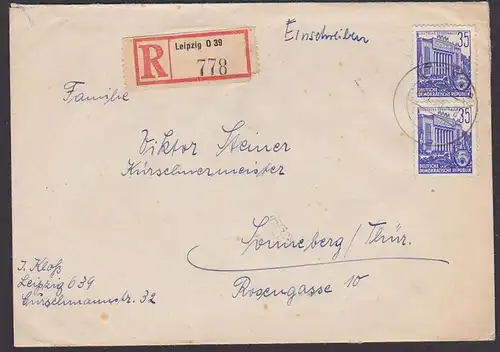 Einschreiben
R Leipzig O 39
778
35
DEUTSCHE
DEMOKRATISCHE REPUBLIK
35
DEUTSCHE
DEMOKRATISCHE REPUBLIK
Familie
Viktor Steiner
Kürschnermeister
Sonneberg/Thür.
Rosengasse 10
J. Kloß
Leipzig O 39
Curschmannstr. 32